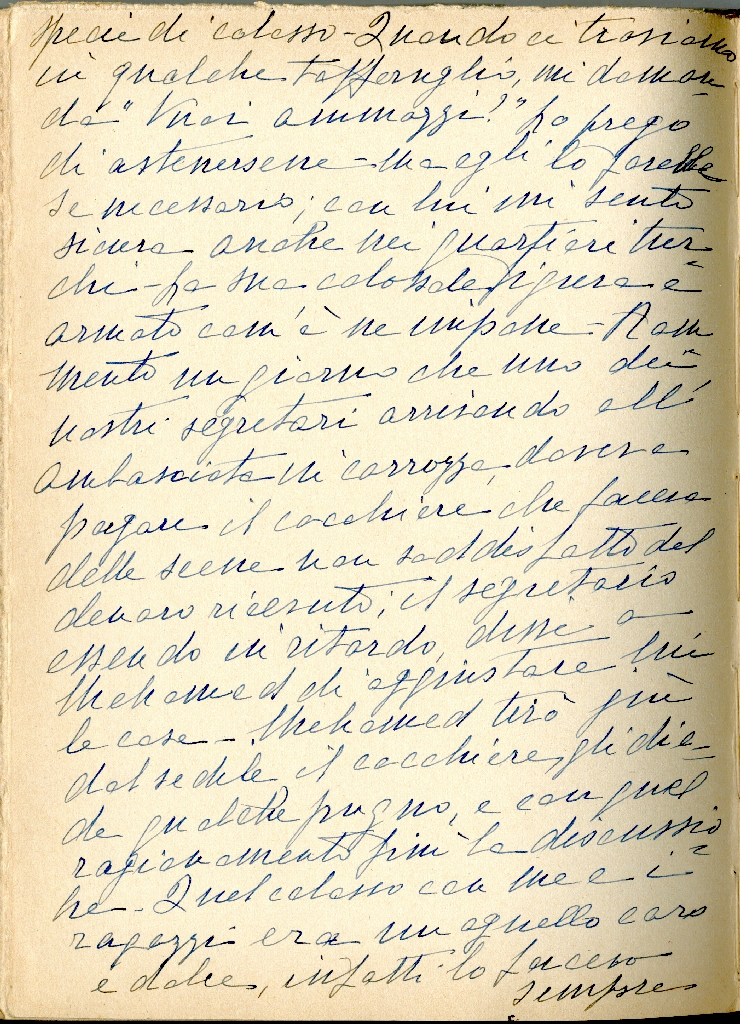 specie di colosso - Quando ci troviamo
in qualche tafferuglio, mi doman-
da "Vuoi ammazzi?" Lo prego
di astenersene - ma egli lo farebbe
se necessario; con lui mi sento
sicura anche nei quartieri tur-
chi - La sua colossale figura e
armato com'è ne impone - Ram
mento un giorno che uno dei
nostri segretari arrivando all'
ambasciata in carrozza, doveva
pagare il cocchiere che faceva
delle scene non soddisfatto del
denaro ricevuto; il segretario
essendo in ritardo, disse a
Mehamed di aggiustare lui
le cose - Mehamed tirò giù
dal sedile il cocchiere, gli die-
de qualche pugno, e con quel
ragionamento finì la discussio
ne - Quel colosso con me e i
ragazzi era un agnello caro
e dolce, infatti lo facevo
sempre